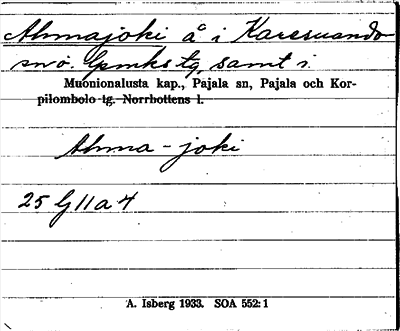 Ahmajoki å i Karesuando
snö. Gpmks tg, samt i
Muonionalusta kap., Pajala sn, Pajala och Kor-
pilombolo tg. Norrbottens l.
Ahma-joki
25 G 11 a 4
A. Isberg 1933. SOA 552: 1